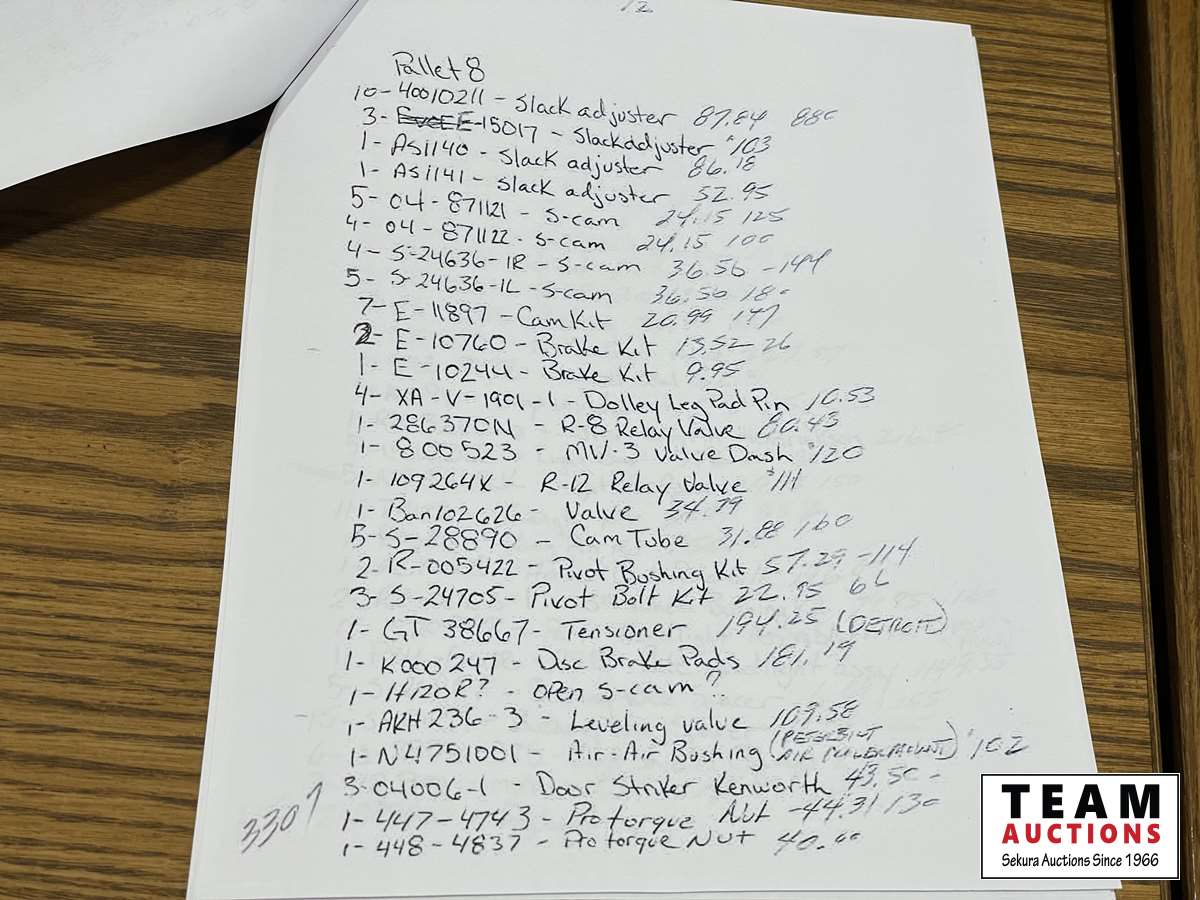 12
Pallet 8
10- 40010211 - Slack adjuster 87.84 880
3- E-15017 - Slack adjuster $103
1- ASi1140 - Slack adjuster 86.18
1- ASi1141 - Slack adjuster 52.95
5- 04-871121 - S-cam 24.15 125
4- 04-871122 - S-cam 24.15 100
4- S-24636-1R - S-cam 36.56 -144
5- S-24636-1L - S-cam 36.56 180
7- E-11897 - Cam Kit 20.99 147
2- E-10760 - Brake Kit 13.52 26
1- E-10244 - Brake Kit 9.95
4- XA-V-1901-1 - Dolley Leg Pad Pin 10.53
1- 286370N - R-8 Relay Valve 80.43
1- 800523 - MV-3 Valve Dash $120
1- 109264X - R-12 Relay Valve $111
1- Ban102626 - Valve 34.79
5- S-28890 - Cam Tube 31.88 160
2- R-005422 - Pivot Bushing Kit 57.29 -114
3- S-24705 - Pivot Bolt Kit 22.95 66
1- GT 38667 - Tensioner 194.25 (DETROIT)
1- K000247 - Disc Brake Pads 181.19
1- H120R? - OPen S-cam?
1- AKH236-3 - Leveling valve 109.58
1- N4751001 - Air-Air Bushing (PETERBILT AIR) $102
3- 04006-1 - Door Striker Kenworth 43.50 -
1- 447-4743 - Pro torque Nut -44.31 130
1- 448-4837 - Pro torque Nut 40.00
3307
TEAM
AUCTIONS
Sekura Auctions Since 1966